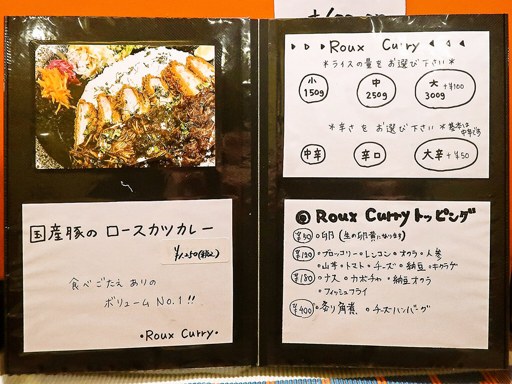 国産豚の ロースカツカレー
¥1,250(税込)
食べごたえ ありの
ボリューム No.1!!
•Roux Curry•
Roux Curry
*ライスの量をお選び下さい*
小 150g
中 250g
大 +¥100 300g
*辛さをお選び下さい*
基本は中辛です
中辛
辛口
大辛 +¥50
Roux Curry トッピング
¥50 •卵(生の卵黄になります)
¥120 •ブロッコリー •レンコン •オクラ •人参
•山芋 •トマト •チーズ •納豆 •キクラゲ
¥180 •ナス •カボチャ •納豆オクラ
•フィッシュフライ
¥400 •炙り角煮 •チーズハンバーグ